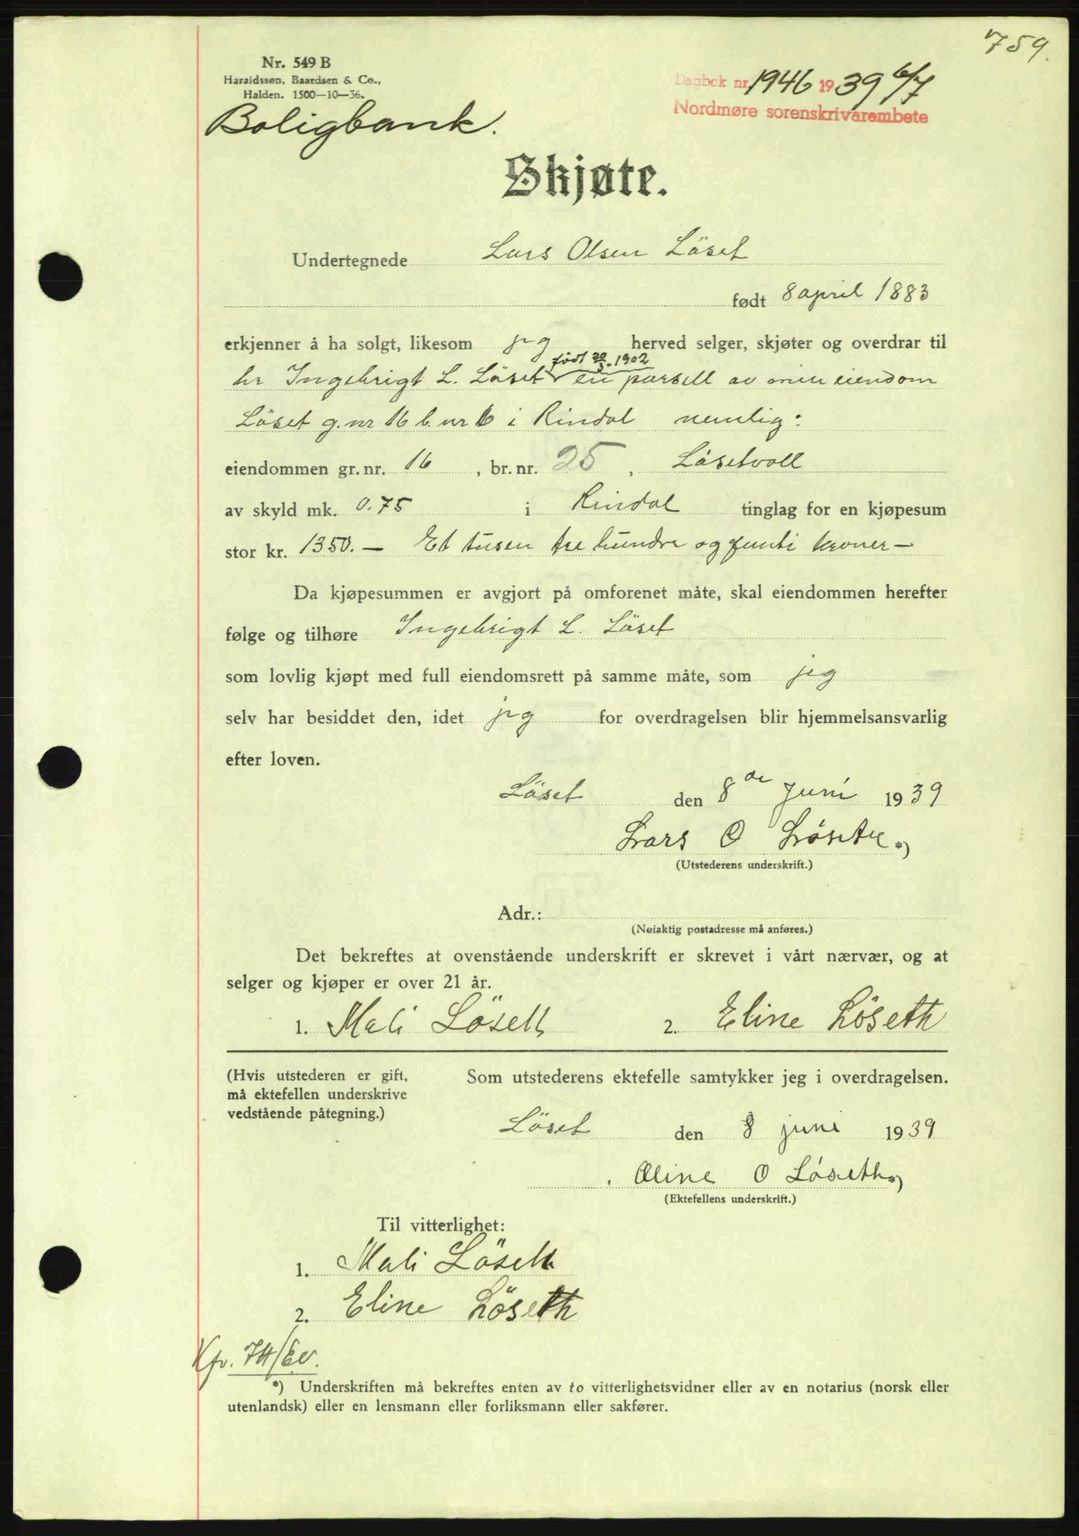 759.
Nr. 549 B
Haraldssøn, Baardsen & Co.,
Halden. 1500—10—36.
Dagbok nr. 1946 1939 6/7
Nordmøre sorenskriverembete
Boligbank.
Skjøte.
Undertegnede Lars Olsen Löset
født 8 april 1883
erkjenner å ha solgt, likesom jeg herved selger, skjøter og overdrar til
født 20/3-1902
hr Ingebrigt L. Löset en parsell av min eiendom
Löset g.nr 16 b.nr 6 i Rindal nemlig:
eiendommen gr. nr. 16, br. nr. 25, Løsetvoll
av skyld mk. 0.75 i Rindal tinglag for en kjøpesum
stor kr. 1350.— Et tusen tre hundre og femti kroner—
Da kjøpesummen er avgjort på omforenet måte, skal eiendommen herefter
følge og tilhøre Ingebrigt L. Löset
som lovlig kjøpt med full eiendomsrett på samme måte, som jeg
selv har besiddet den, idet jeg for overdragelsen blir hjemmelsansvarlig
efter loven.
Löset den 8de Juni 1939
Lars O Løseth *)
(Utstederens underskrift.)
Adr.:
(Nøiaktig postadresse må anføres.)
Det bekreftes at ovenstående underskrift er skrevet i vårt nærvær, og at
selger og kjøper er over 21 år.
1. Mali Löseth 2. Eline Löseth
(Hvis utstederen er gift,
må ektefellen underskrive
vedstående påtegning.)
Som utstederens ektefelle samtykker jeg i overdragelsen.
Löset den 8 juni 1939
Oline O Løseth *)
(Ektefellens underskrift.)
Til vitterlighet:
1. Mali Löseth
2. Eline Löseth
*) Underskriften må bekreftes enten av to vitterlighetsvidner eller av en notarius (norsk eller
utenlandsk) eller en lensmann eller forliksmann eller sakfører.